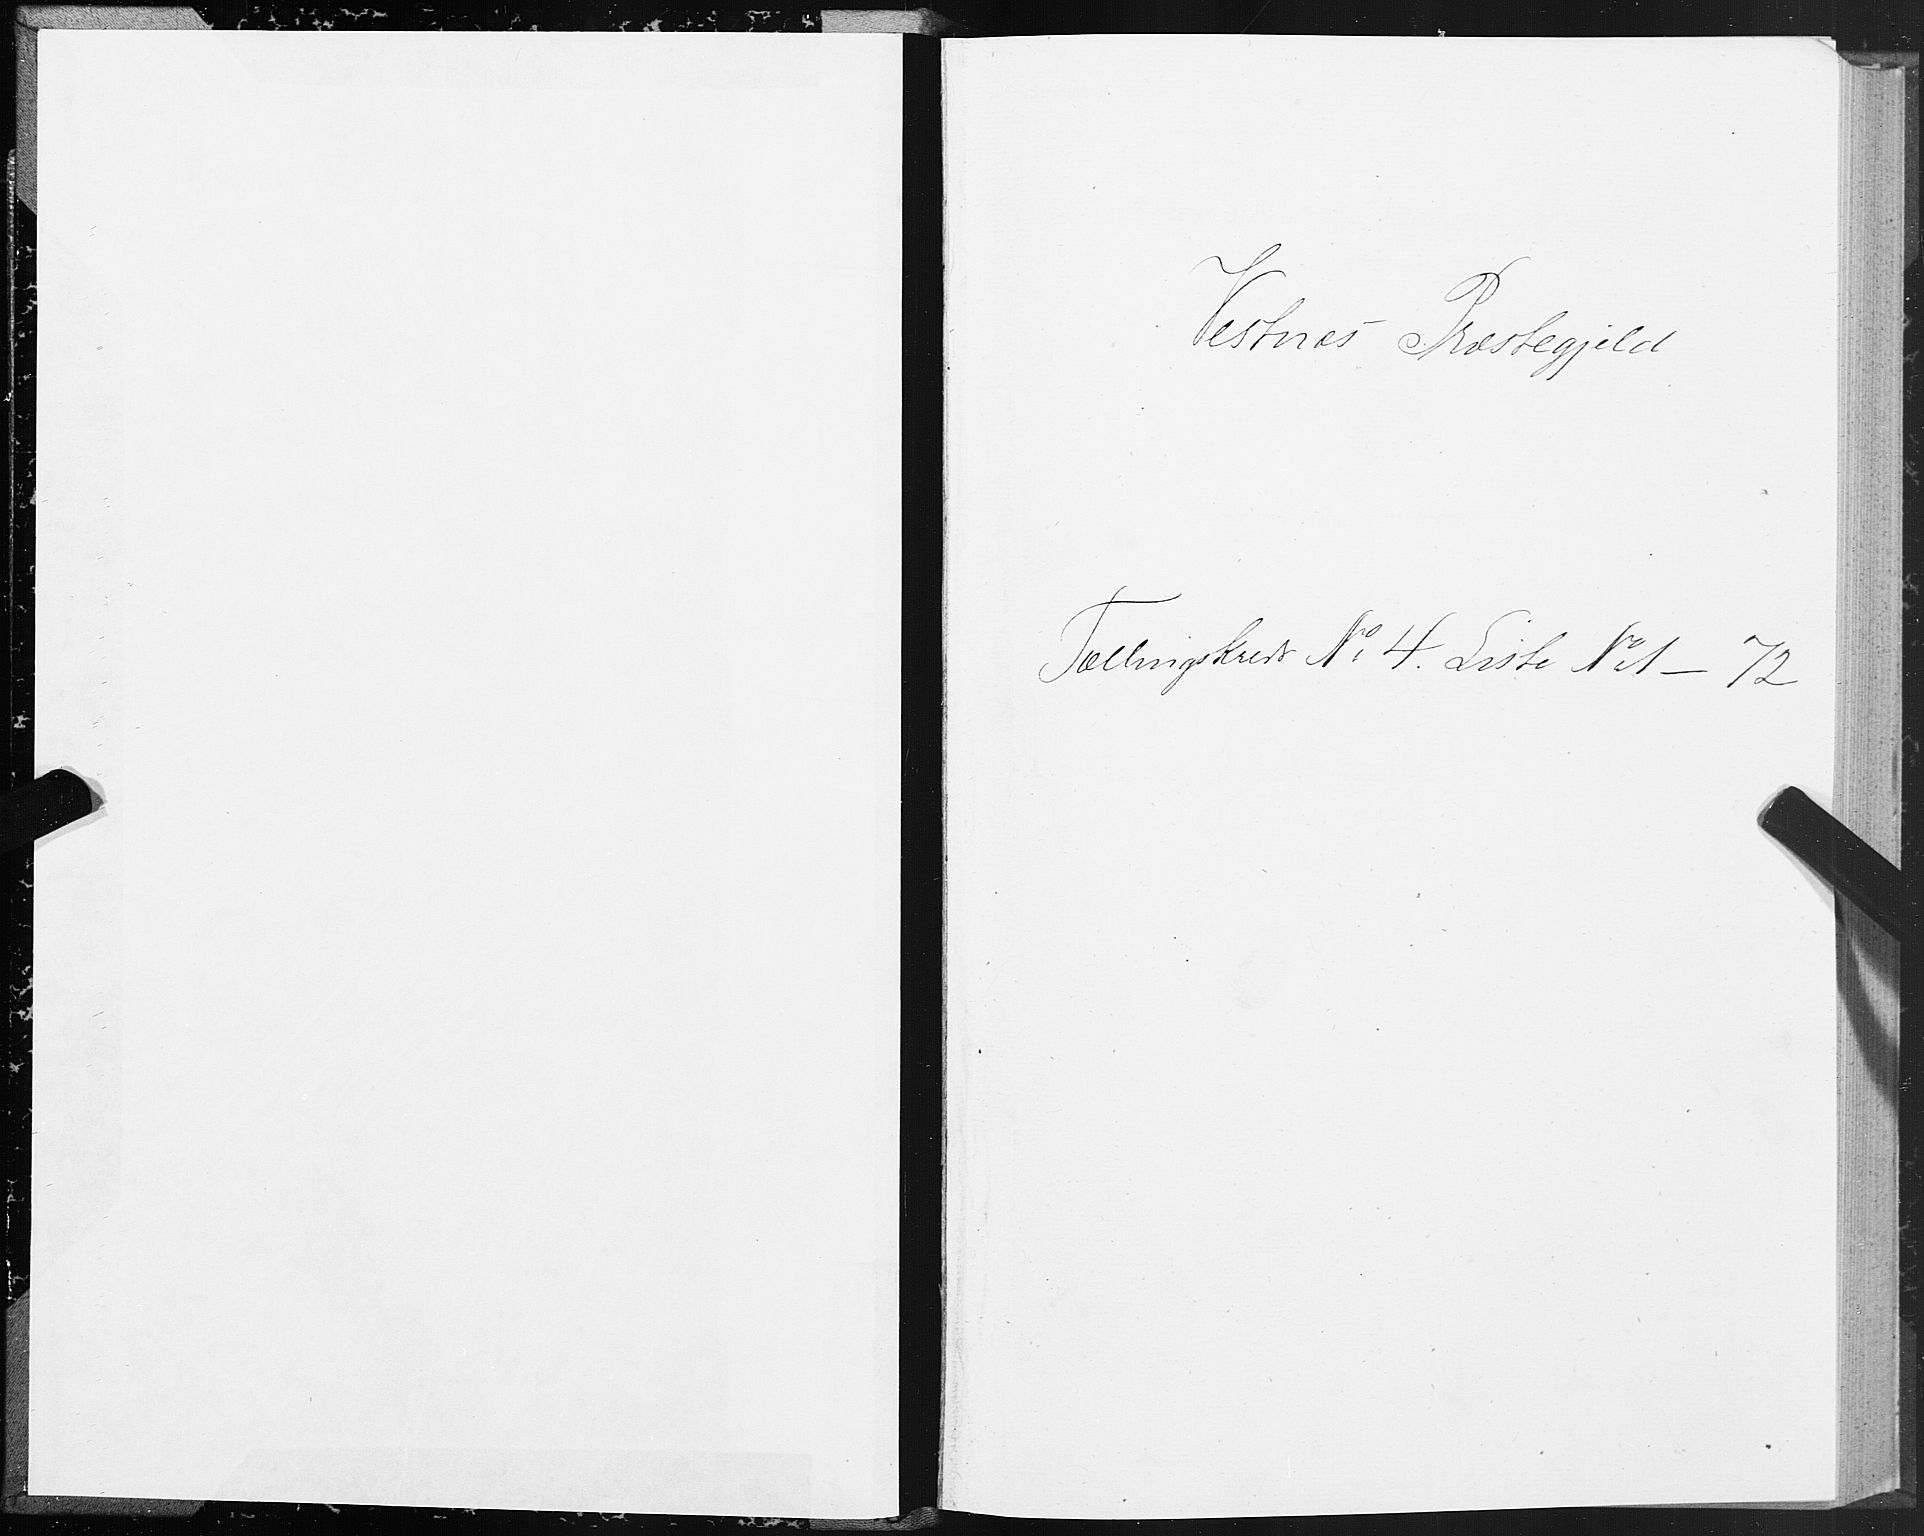 Vestnæs Præstegjeld
Tællingskreds No 4. Liste No 1 — 72